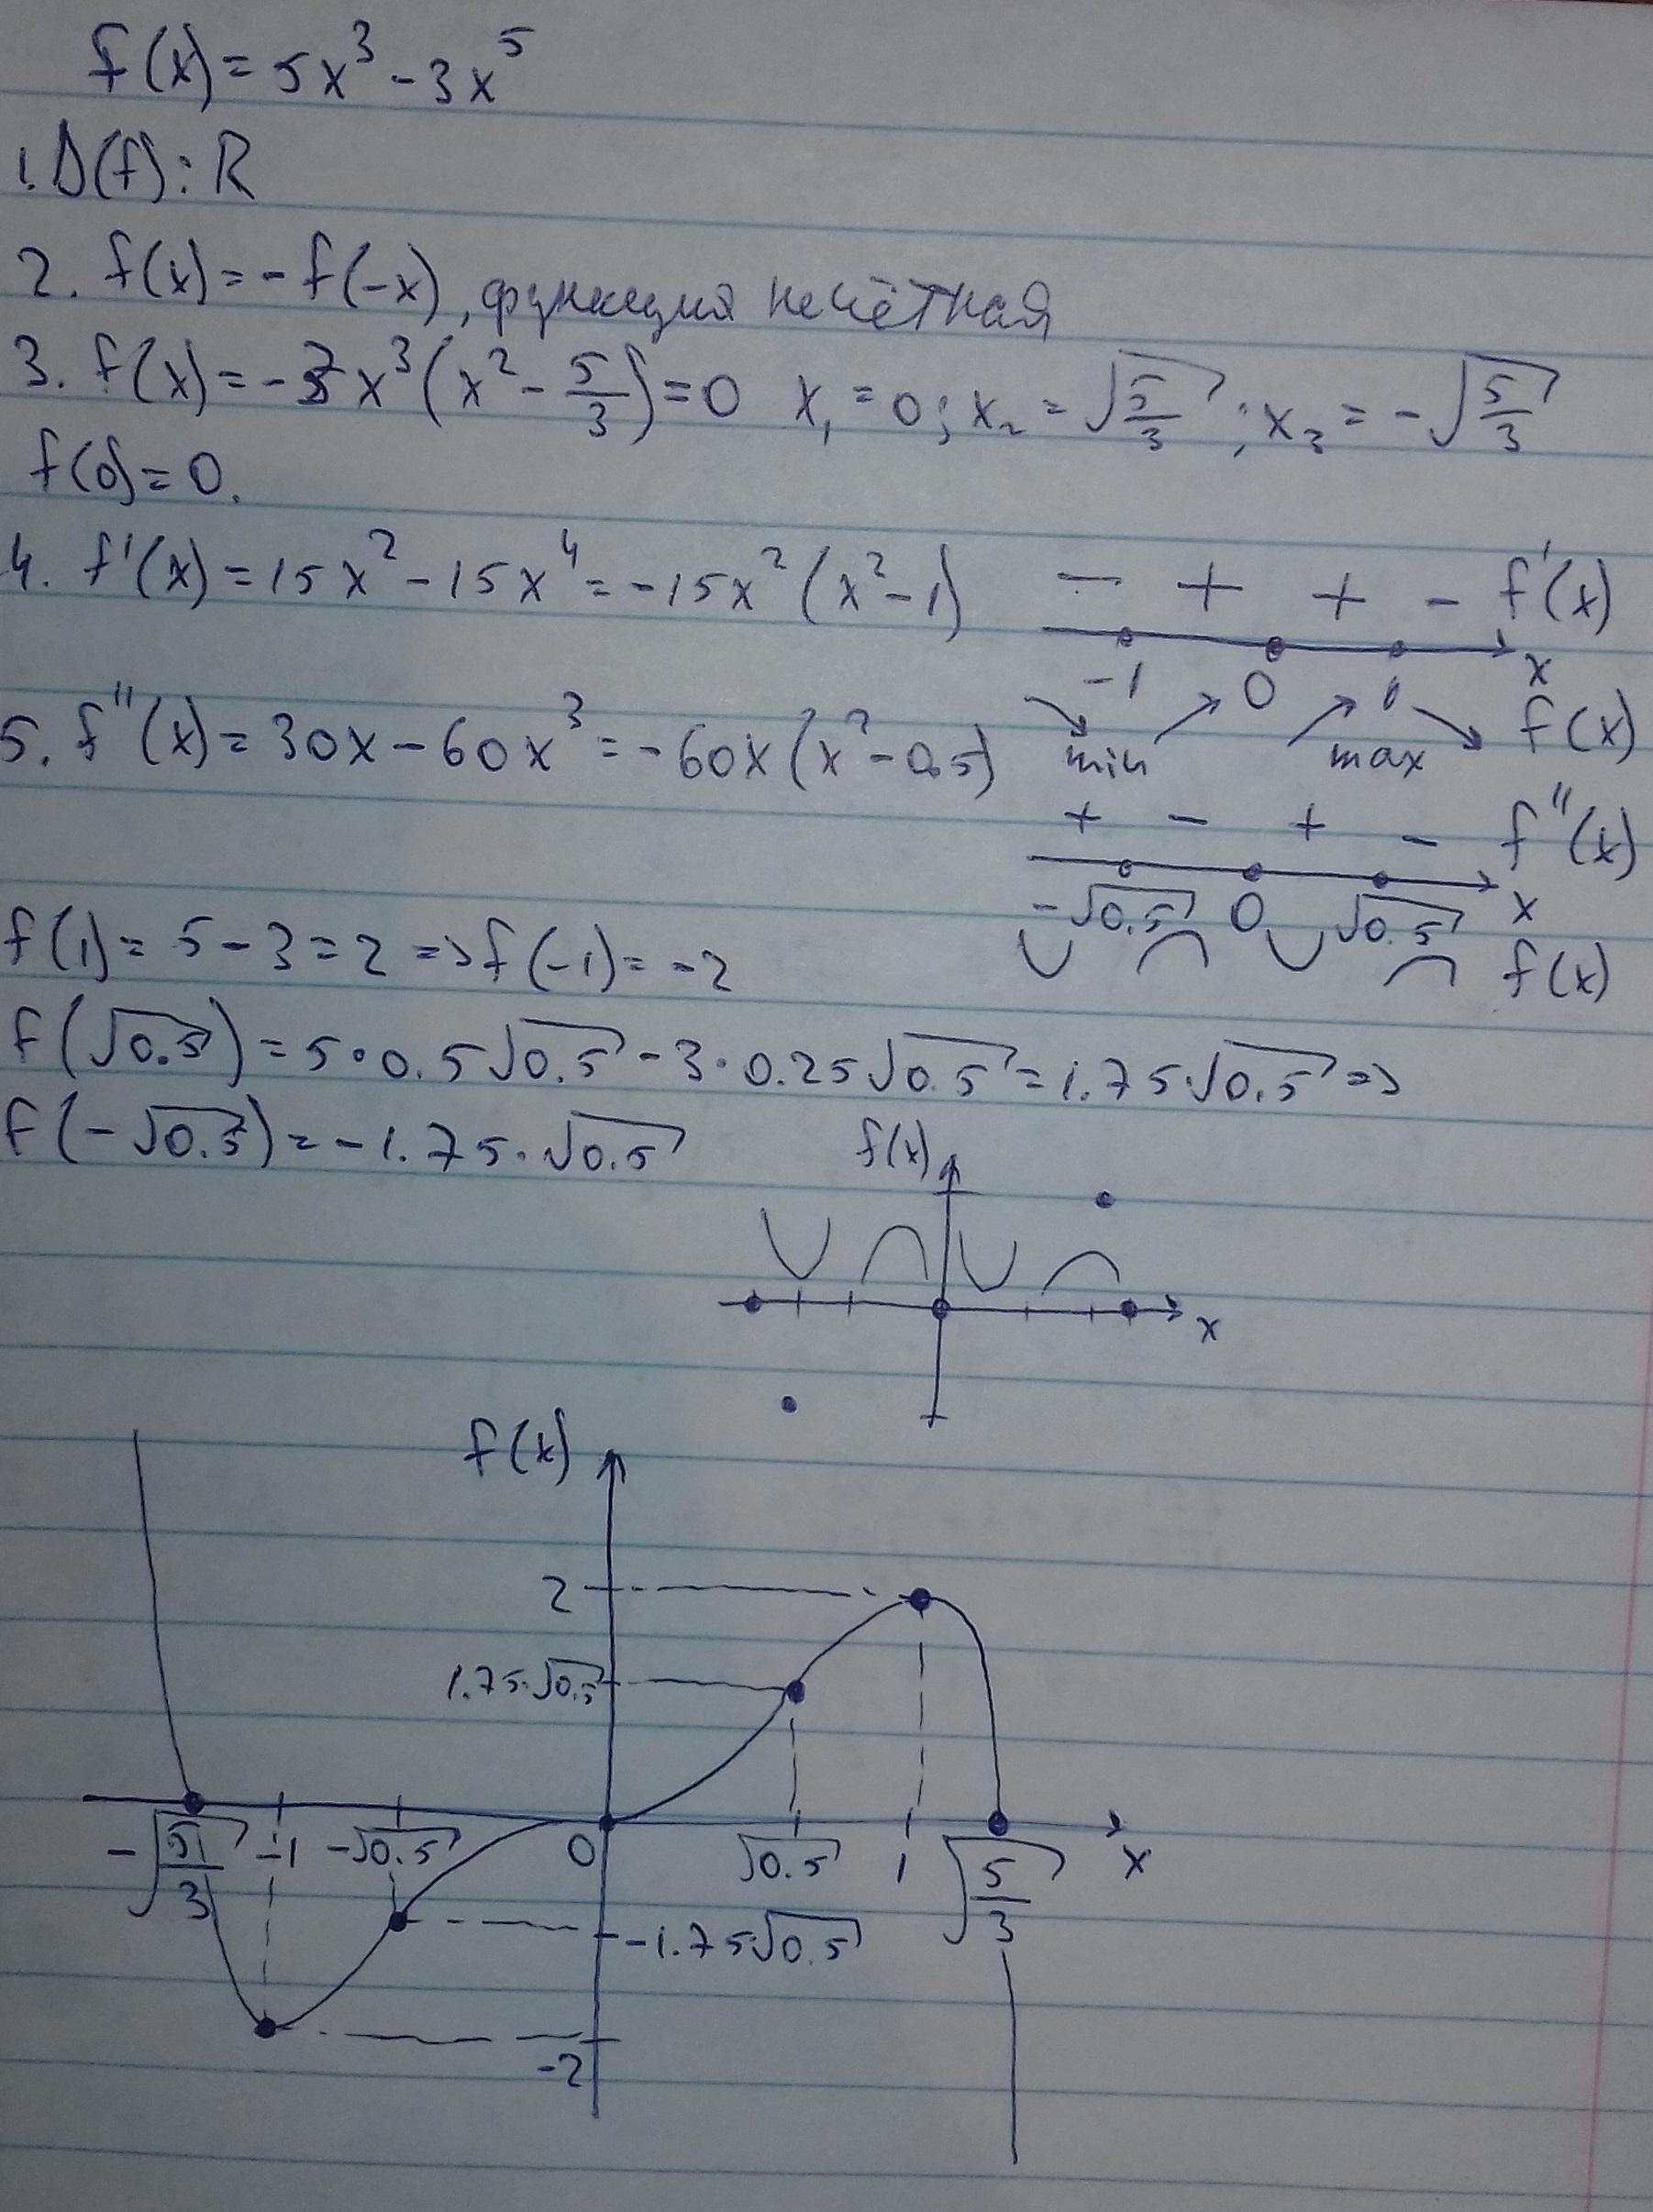 f(x)=5x³-3x⁵
1. D(f): R
2. f(x)=-f(-x), функция нечётная
3. f(x)=-3x³(x²-5/3)=0 x₁=0; x₂=√(5/3); x₃=-√(5/3)
f(0)=0.
4. f'(x)=15x²-15x⁴=-15x²(x²-1)
- + + - f'(x)
-1 0 1 x
min max f(x)
5. f''(x)=30x-60x³=-60x(x²-0.5)
+ - + - f''(x)
-√0.5 0 √0.5 x
f(x)
f(1)=5-3=2 => f(-1)=-2
f(√0.5)=5·0.5√0.5-3·0.25√0.5=1.75·√0.5 =>
f(-√0.5)=-1.75·√0.5
f(x)
x
f(x)
2
1.75·√0.5
-√(5/3) -1 -√0.5 0 √0.5 1 √(5/3) x
-1.75√0.5
-2